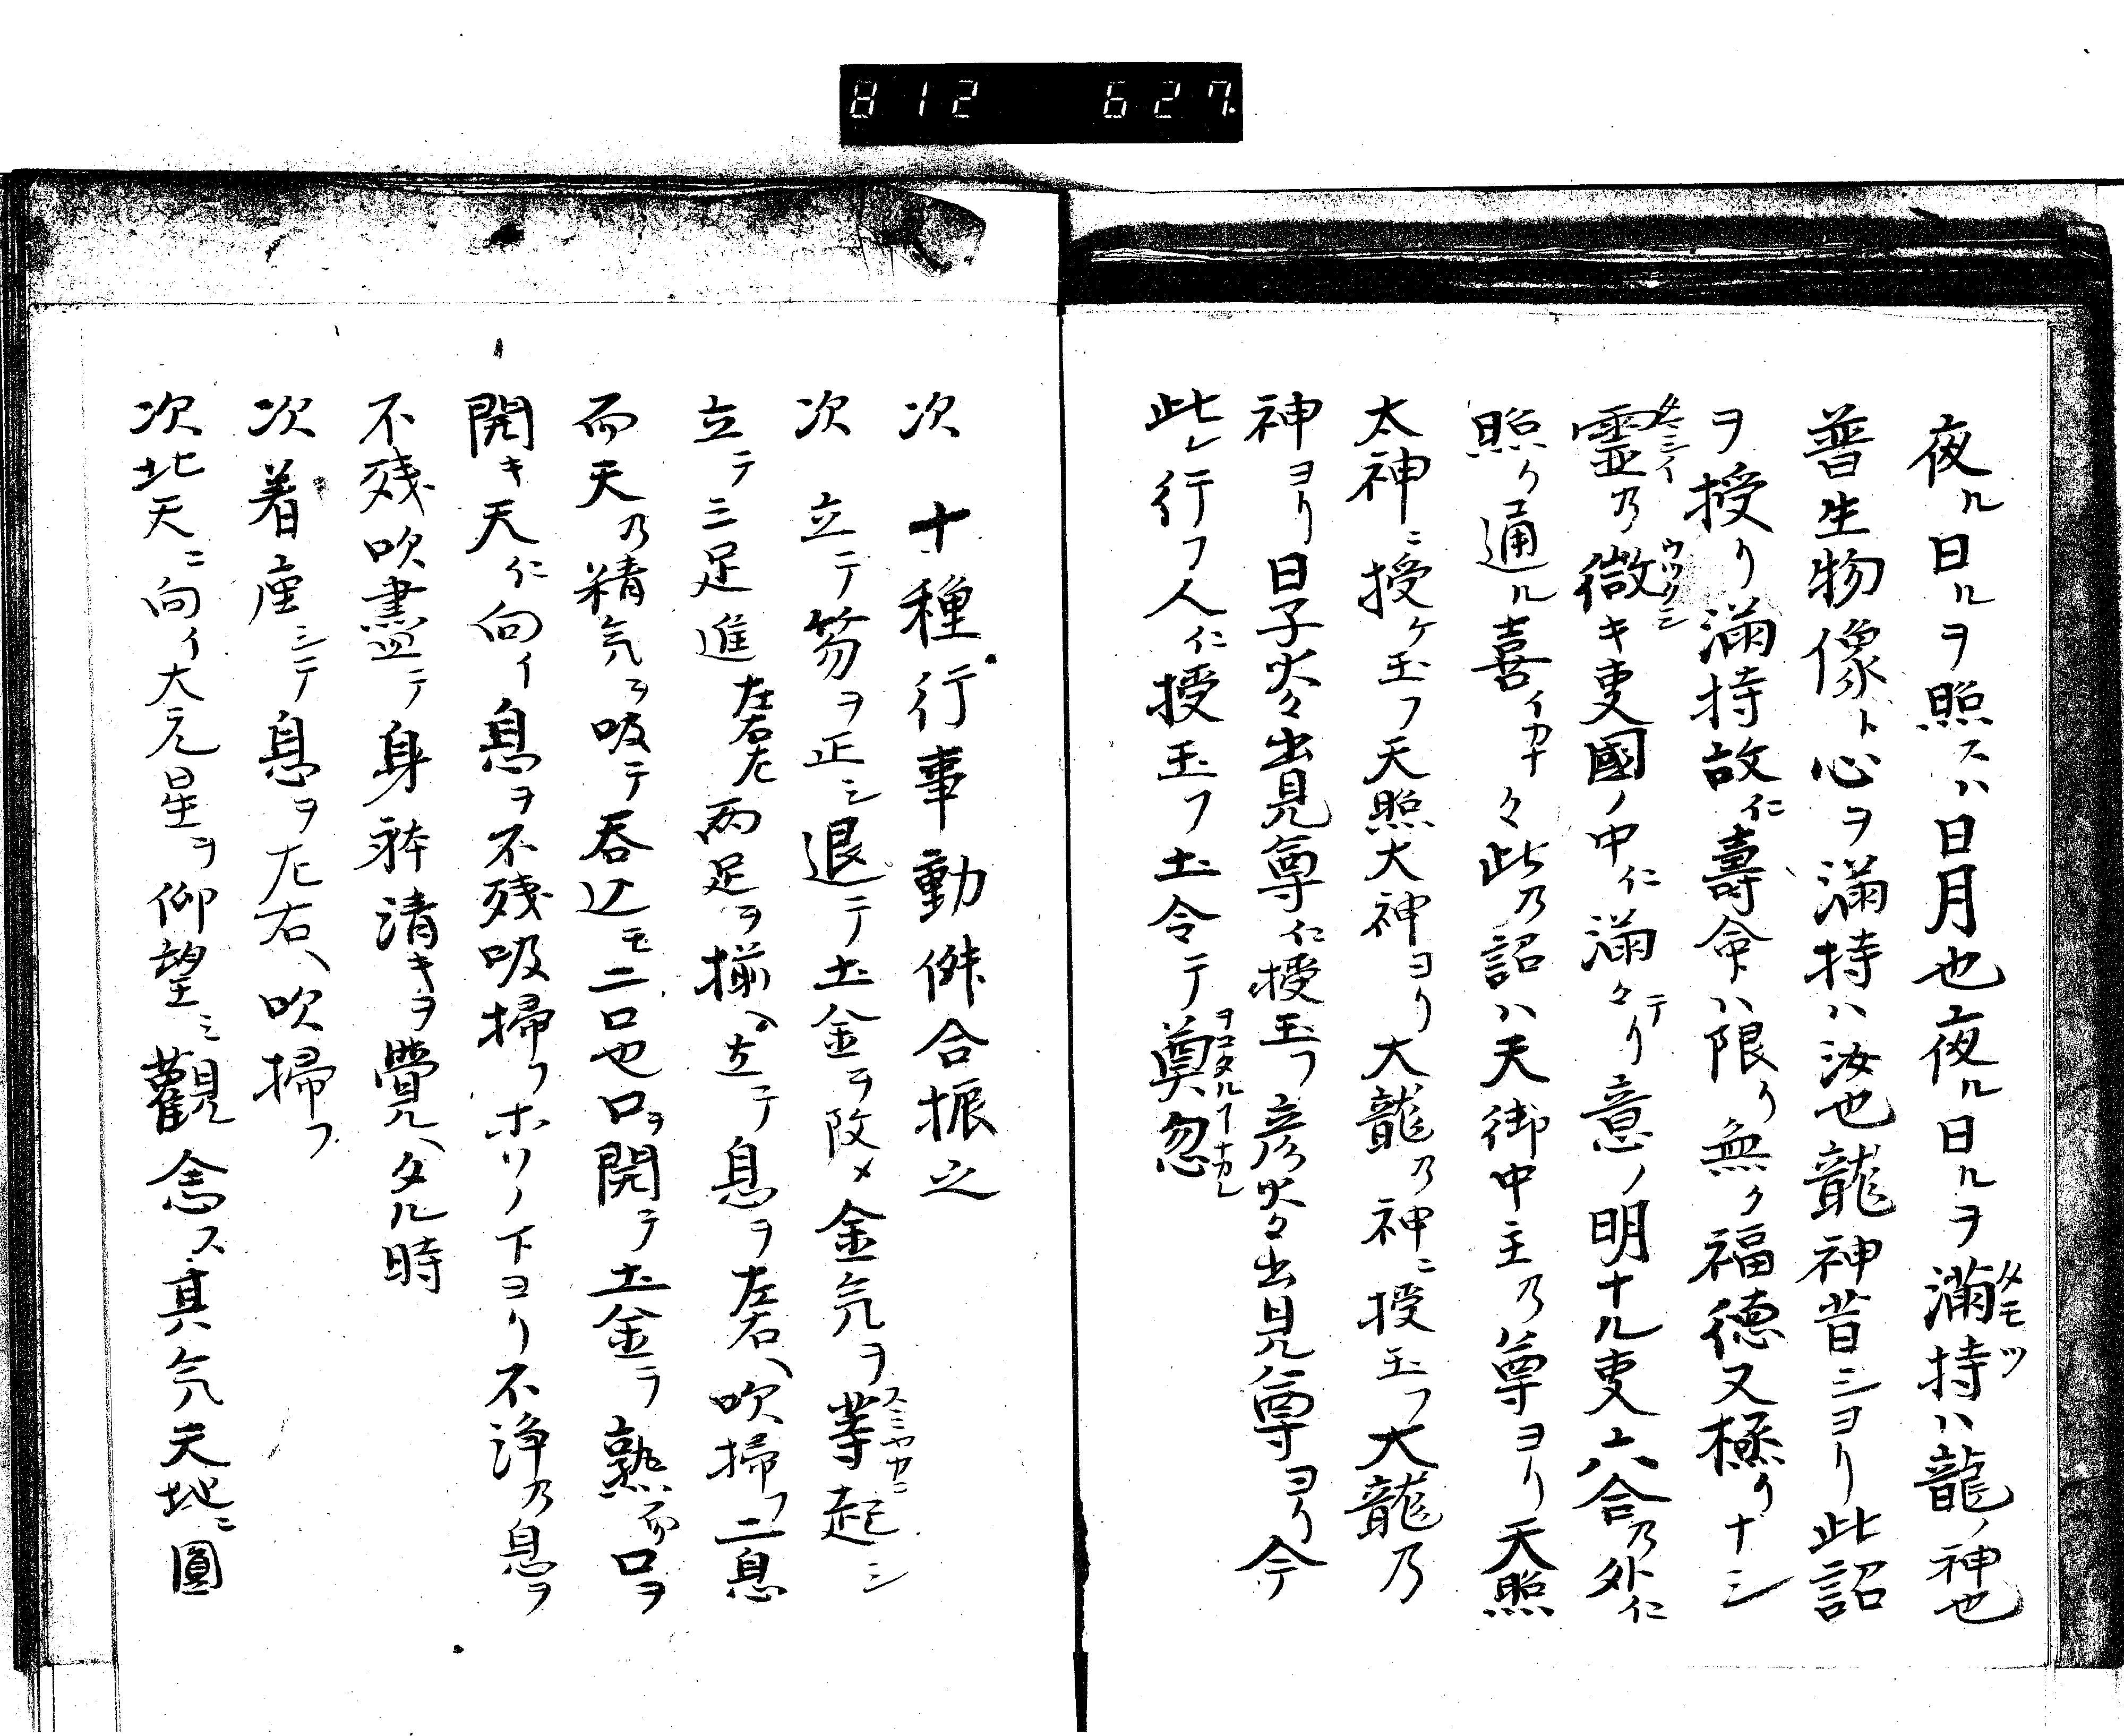 812 627.
夜ル日ルヲ照スハ日月也夜ル日ルヲ満持ハ龍ノ神也
タモツ
普生物像ト心ヲ満持ハ汝也龍神昔シヨリ此詔
ヲ授リ満持故仁壽命ハ限リ無ク福徳又極リナシ
霊乃微キ叓國ノ中仁満々テリ意ノ明ナル叓六合乃外仁
タマシイ
ウツクシ
照リ通ル喜イカナ々此乃詔ハ天御中主乃尊ヨリ天照
太神ニ授ケ玉フ天照大神ヨリ大龍乃神ニ授玉フ大龍乃
神ヨリ日子火々出見尊仁授玉フ彦火々出見尊ヨリ今
此レ行フ人仁授玉フ土令テ奠忽
ヲコタルヿナカレ
次 十種行事動併合振之
次 立テ笏ヲ正シ退テ土金ヲ改メ金気ヲ等起シ
スミヤカニ
立テ三足進左右左両足ヲ揃ヘ立テ息ヲ左右ヘ吹掃フ二息
而天乃精気ヲ吸テ呑込モ二口也口ヲ開テ土金ヲ熟而口ヲ
開キ天仁向イ息ヲ不残吸掃フホソノ下ヨリ不浄乃息ヲ
不残吹盡テ身躰清キヲ覺ヘタル時
次着座シテ息ヲ左右ヘ吹掃フ
次北天ニ向イ大元星ヲ仰望ミ觀念ス真気天地ニ圓